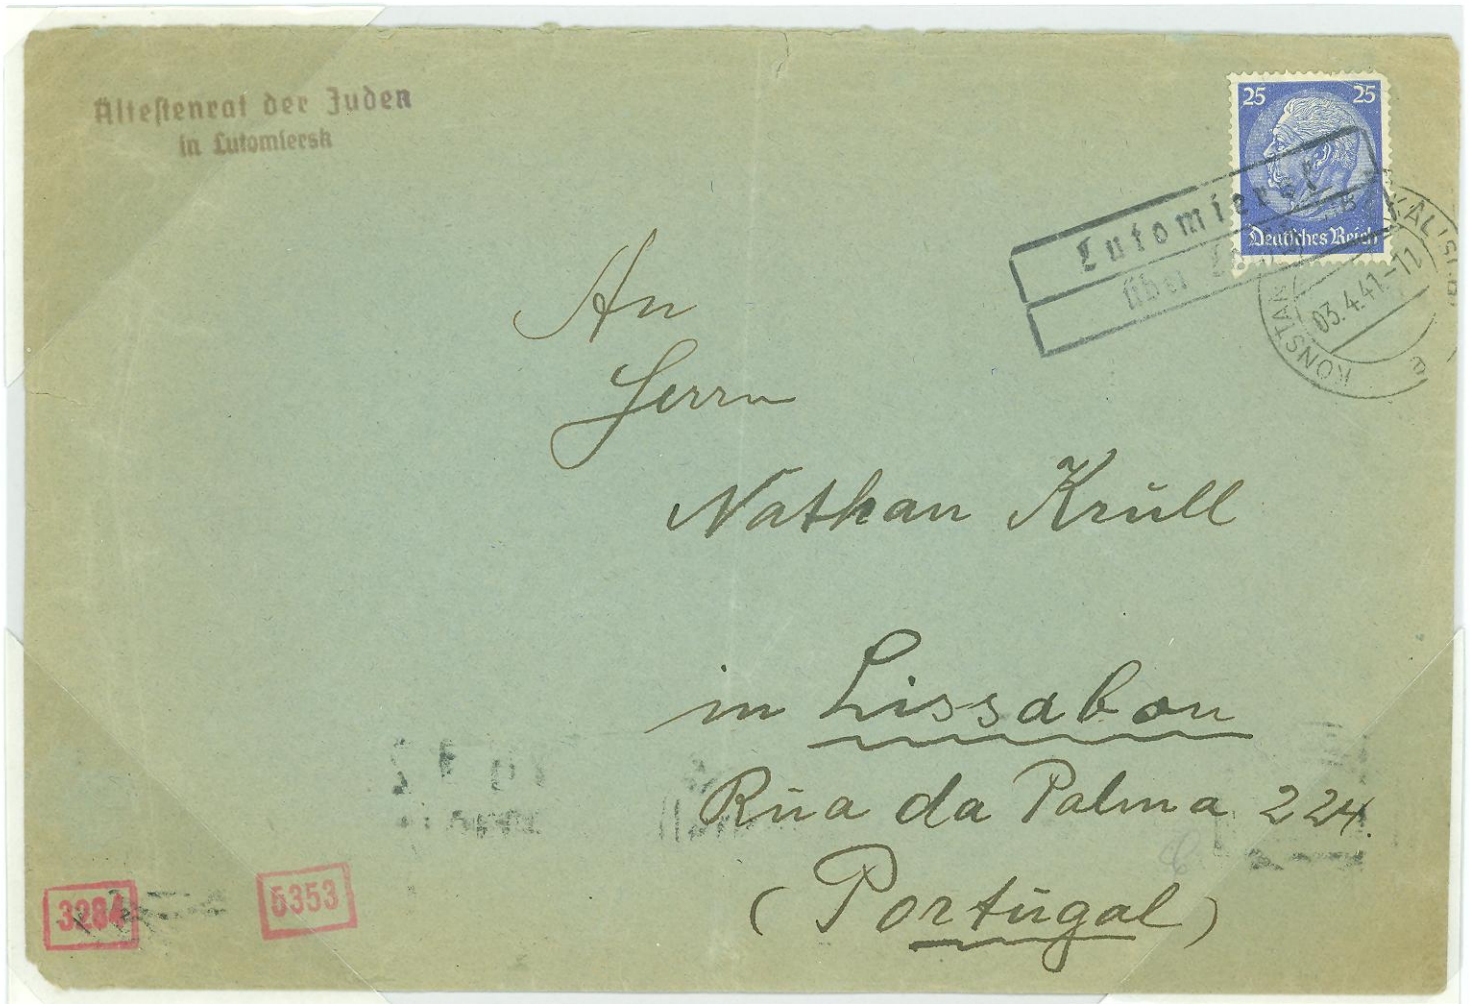 Ältestenrat der Juden
in Lutomiersk
25 25
Deutsches Reich
Lutomiersk
über
KONSTAN KALISCH
03.4.41.-11
e
An
Herrn
Nathan Krŭll
in Lissabon
Rŭa da Palma 224.
(Portŭgal)
3284
5353